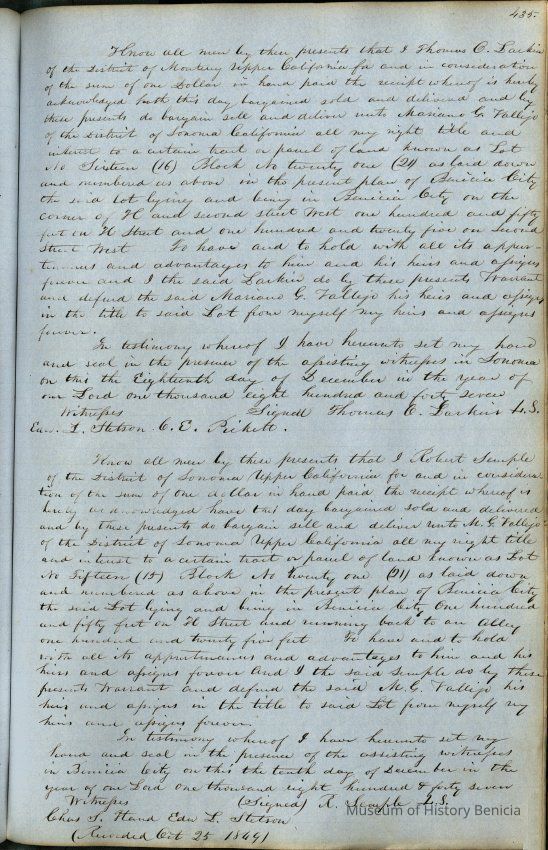 435.
Know all men by these presents that I Thomas O. Larkin
of the District of Monterey Upper California for and in consideration
of the sum of one Dollar in hand paid the receipt whereof is hereby
acknowledged hath this day bargained sold and delivered and by
these presents do bargain sell and deliver unto Mariano G. Vallejo
of the District of Sonoma California all my right title and
interest to a certain tract or parcel of land known as Lot
No Sixteen (16) Block No twenty one (21) as laid down
and numbered as above in the present plan of Benicia City
the said lot lying and being in Benicia City on the
corner of H and second street West one hundred and fifty
feet on H Street and one hundred and twenty five on second
street West To have and to hold with all its appur-
tenances and advantages to him and his heirs and assigns
forever and I the said Larkin do by these presents Warrant
and defend the said Mariano G. Vallejo his heirs and assigns
in the title to said Lot from myself my heirs and assigns
forever.
In testimony whereof I have hereunto set my hand
and seal in the presence of the assisting witnesses in Sonoma
on this the Eighteenth day of December in the year of
our Lord one thousand eight hundred and forty seven
Witnesses Signed Thomas O. Larkin L.S.
Edw. L. Stetson. C. E. Pickett.
Know all men by these presents that I Robert Semple
of the District of Sonoma Upper California for and in considera
tion of the sum of one dollar in hand paid the receipt whereof is
hereby acknowledged have this day bargained sold and delivered
and by these presents do bargain sell and deliver unto M. G. Vallejo
of the District of Sonoma Upper California all my right title
and interest to a certain tract or parcel of land known as Lot
No Fifteen (15) Block No twenty one (21) as laid down
and numbered as above in the present plan of Benicia City
the said Lot lying and being in Benicia City One hundred
and fifty feet on H Street and running back to an alley
one hundred and twenty five feet To have and to hold
with all its appurtenances and advantages to him and his
heirs and assigns forever And I the said Semple do by these
presents Warrant and defend the said M. G. Vallejo his
heirs and assigns in the title to said Lot from myself my
heirs and assigns forever.
In testimony whereof I have hereunto set my
hand and seal in the presence of the assisting witnesses
in Benicia City on this the tenth day of December in the
year of our Lord one thousand eight hundred & forty seven
Witnesses (Signed) R. Semple L.S.
Chas S. Hand Edw L. Stetson
(Recorded Oct 25 1849)
Museum of History Benicia